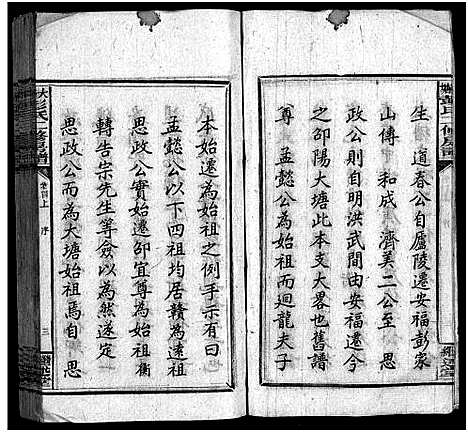 生 道春公自廬陵遷安福彭家
山傳 和成 濟美二公至 思
政公則自明洪武間由安福遷今
之邵陽大塘此本支大畧也舊譜
尊 孟懿公為始祖而廻龍夫子
本始遷為始祖之例手示有曰
孟懿公以下四祖均居贛為遠祖
思政公實始遷邵宜尊為始祖衡
轉告宗先生等僉以為然遂定
思政公而為大塘始祖焉自 思
卷首上 序
三